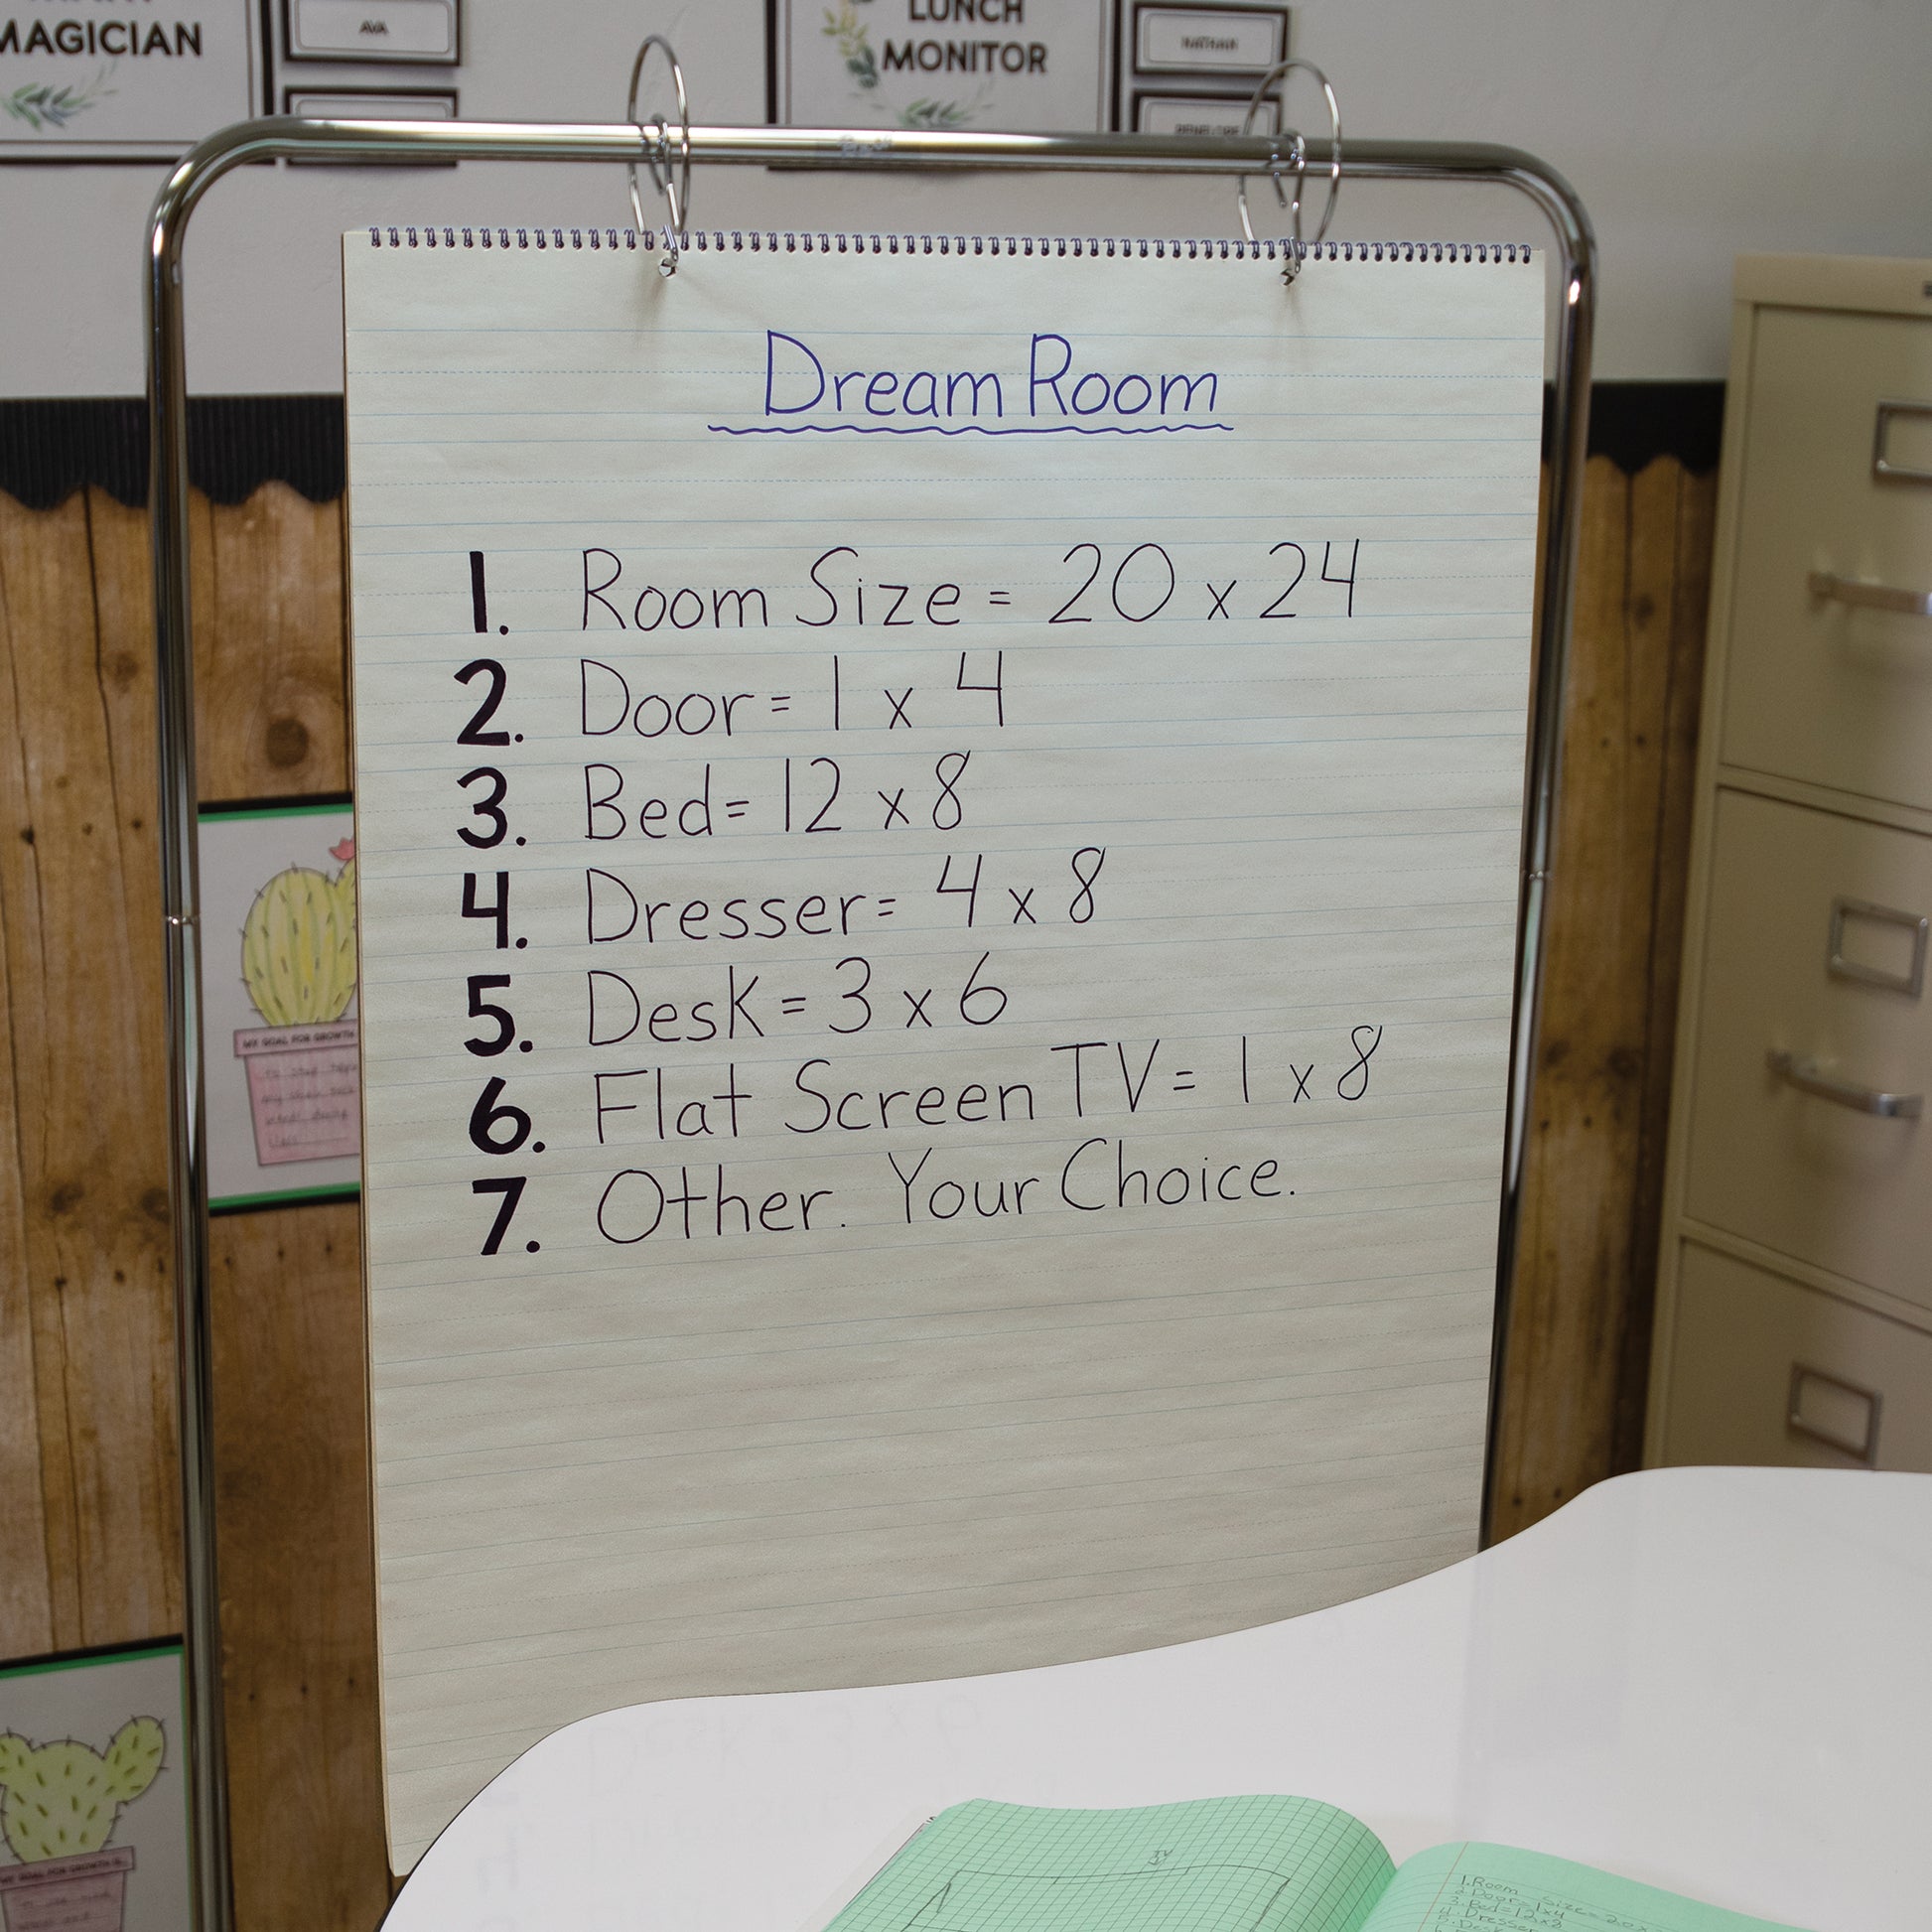 MAGICIAN
AVA
LUNCH
MONITOR
NATHAN
Dream Room
1. Room Size = 20 x 24
2. Door = 1 x 4
3. Bed = 12 x 8
4. Dresser = 4 x 8
5. Desk = 3 x 6
6. Flat Screen TV = 1 x 8
7. Other. Your Choice.
MY GOAL FOR GROWTH
MY GOAL FOR GROWTH IS
TV
1. Room Size = 20x
2. Door = 1x4
3. Bed = 12x8
4. Dresser
5. Desk